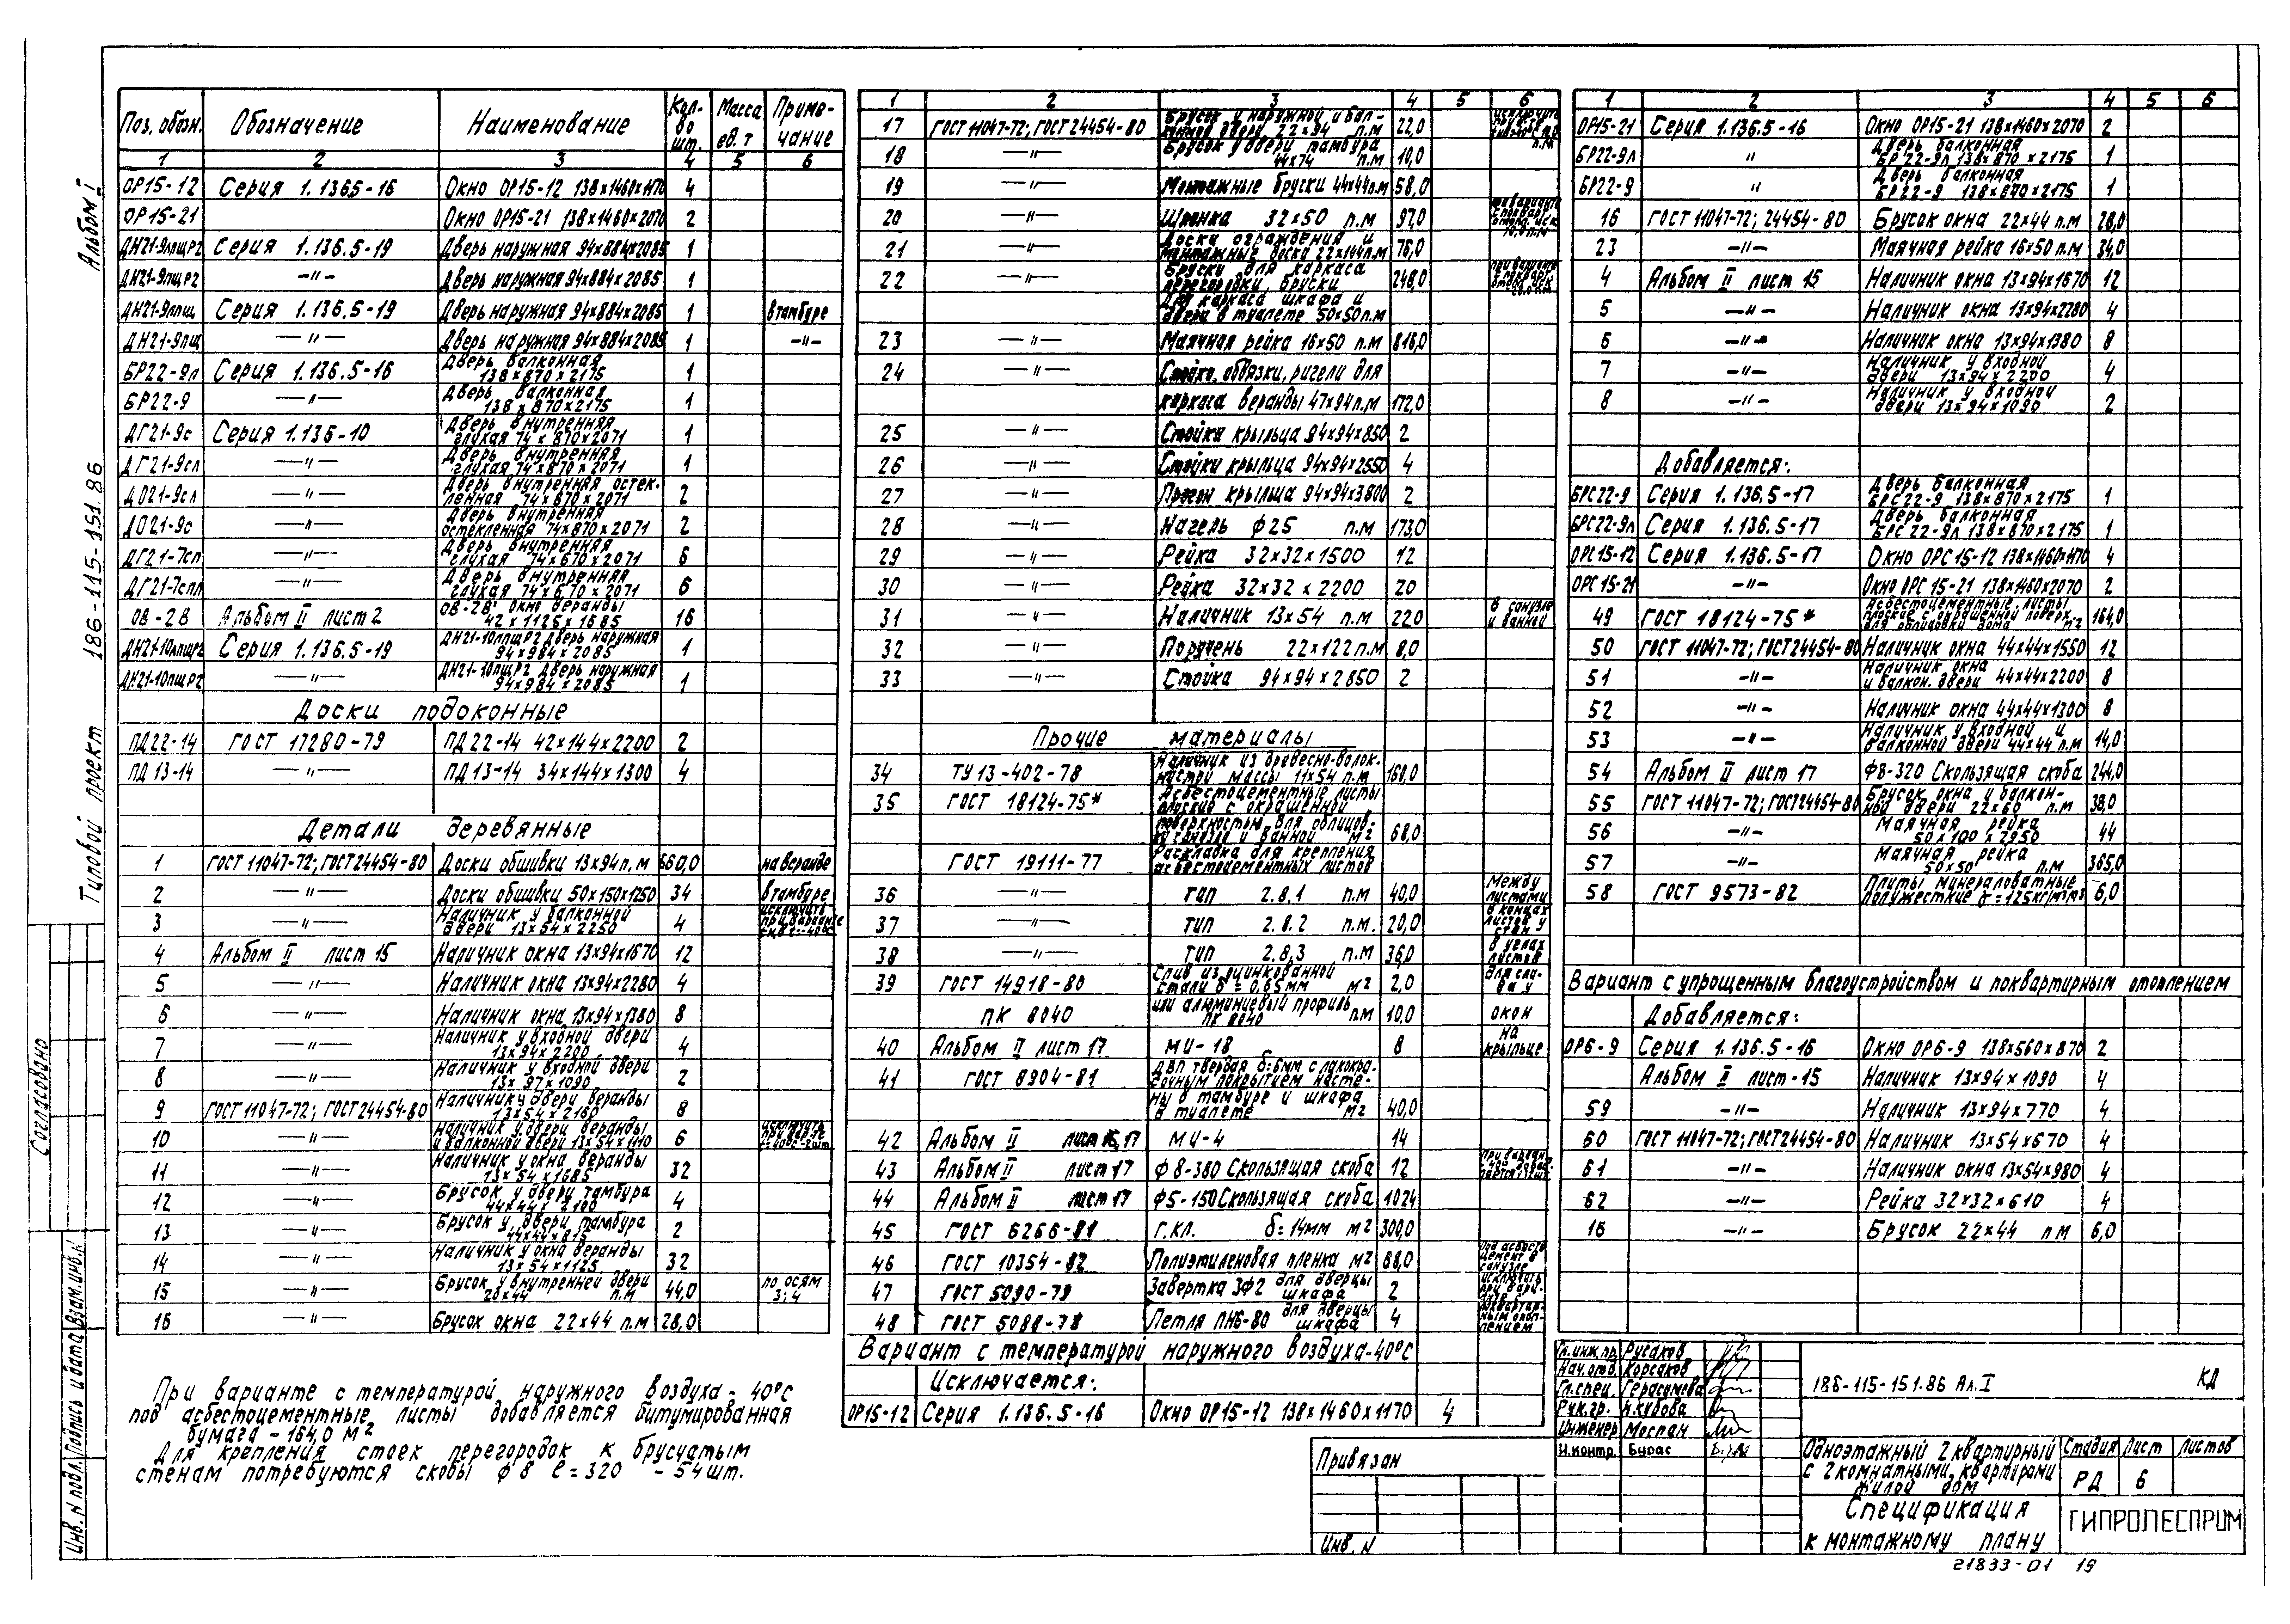 Альбом I
Типовой проект 186-115-151.86
Согласовано
Инв. N подл. Подпись и дата Взам. инв. N
Поз. обозн. Обозначение Наименование Кол-во шт. Масса ед. т Приме-чание
1 2 3 4 5 6
ОР15-12 Серия 1.136.5-16 Окно ОР15-12 138х1460х1170 4
ОР15-21 Окно ОР15-21 138х1460х2070 2
ДН21-9лпщР2 Серия 1.136.5-19 Дверь наружная 94х884х2085 1
ДН21-9пщР2 —"— Дверь наружная 94х884х2085 1
ДН21-9лпщ Серия 1.136.5-19 Дверь наружная 94х884х2085 1 в тамбуре
ДН21-9пщ —"— Дверь наружная 94х884х2085 1 —"—
БР22-9л Серия 1.136.5-16 Дверь балконная 138х870х2175 1
БР22-9 —"— Дверь балконная 138х870х2175 1
ДГ21-9с Серия 1.136-10 Дверь внутренняя глухая 74х870х2071 1
ДГ21-9сл —"— Дверь внутренняя глухая 74х870х2071 1
ДО21-9сл —"— Дверь внутренняя остек-ленная 74х870х2071 2
ДО21-9с —"— Дверь внутренняя остекленная 74х870х2071 2
ДГ21-7сп —"— Дверь внутренняя глухая 74х670х2071 6
ДГ21-7спл —"— Дверь внутренняя глухая 74х670х2071 6
ОВ-28 Альбом II лист 2 ОВ-28 окно веранды 42х1125х1685 16
ДН21-10лпщР2 Серия 1.136.5-19 ДН21-10лпщР2 дверь наружная 94х984х2085 1
ДН21-10пщР2 —"— ДН21-10пщР2 дверь наружная 94х984х2085 1
Доски подоконные
ПД22-14 ГОСТ 17280-79 ПД22-14 42х144х2200 2
ПД13-14 —"— ПД13-14 34х144х1300 4
Детали деревянные
1 ГОСТ 11047-72; ГОСТ 24454-80 Доски обшивки 13х94 п.м 660,0 на веранде
2 —"— Доски обшивки 50х150х1250 34 в тамбуре
3 —"— Наличник у балконной двери 13х54х2250 4 исключить при варианте
4 Альбом II лист 15 Наличник окна 13х94х1670 12
5 —"— Наличник окна 13х94х2280 4
6 —"— Наличник окна 13х94х1380 8
7 —"— Наличник у входной двери 13х94х2200 4
8 —"— Наличник у входной двери 13х97х1090 2
9 ГОСТ 11047-72; ГОСТ 24454-80 Наличник у двери веранды 13х54х2160 8
10 —"— Наличник у двери веранды и балконной двери 13х54х1110 6 исключить
11 —"— Наличник у окна веранды 13х54х1685 32
12 —"— Брусок у двери тамбура 44х44х2100 4
13 —"— Брусок у двери тамбура 44х44х815 2
14 —"— Наличник у окна веранды 13х54х1125 32
15 —"— Брусок у внутренней двери 20х44 п.м 44,0 по осям 3; 4
16 —"— Брусок окна 22х44 п.м 28,0
При варианте с температурой наружного воздуха - 40°С
под асбестоцементные листы добавляется битумированная
бумага - 164,0 м2
Для крепления стоек перегородок к брусчатым
стенам потребуются скобы ф8 ℓ=320 - 54 шт.
1 2 3 4 5 6
17 ГОСТ 11047-72; ГОСТ 24454-80 Брусок у наружной и бал-конной двери 22х94 п.м 22,0 исключить
18 —"— Брусок у двери тамбура 44х74 п.м 10,0
19 —"— Монтажные бруски 44х44 п.м 58,0
20 —"— Шпонка 32х50 п.м 97,0
21 —"— Доски ограждения и монтажные доска 22х144 п.м 76,0
22 —"— Бруски для каркаса перегородки, бруски 248,0
для каркаса шкафа и двери в туалете 50х50 п.м
23 —"— Маячная рейка 16х50 п.м 816,0
24 —"— Стойки, обвязки, ригели для
каркаса веранды 47х94 п.м 172,0
25 —"— Стойки крыльца 94х94х850 2
26 —"— Стойки крыльца 94х94х2550 4
27 —"— Прогон крыльца 94х94х3800 2
28 —"— Нагель ф25 п.м 173,0
29 —"— Рейка 32х32х1500 12
30 —"— Рейка 32х32х2200 20
31 —"— Наличник 13х54 п.м 22,0 в санузле и ванной
32 —"— Поручень 22х122 п.м 8,0
33 —"— Стойка 94х94х2850 2
Прочие материалы
34 ТУ 13-402-78 Наличник из древесно-волок-нистой массы 11х54 п.м 160,0
35 ГОСТ 18124-75* Асбестоцементные листы плоские с окрашенной
поверхностью для облицов-ки санузла и ванной м2 68,0
ГОСТ 19111-77 Раскладка для крепления асбестоцементных листов
36 —"— тип 2.8.1 п.м 40,0 Между листами
37 —"— тип 2.8.2 п.м. 20,0 в концах листов у стен
38 —"— тип 2.8.3 п.м 36,0 в углах листов
39 ГОСТ 14918-80 Слив из оцинкованной стали δ=0,65мм м2 2,0 для сли-ва у
ПК 8040 или алюминиевый профиль ПК 8040 п.м 10,0 окон
40 Альбом II лист 17 МИ-18 8 на крыльце
41 ГОСТ 8904-81 ДВП твердая δ=6мм с лакокра-сочным покрытием на сте-
ны в тамбуре и шкафа в туалете м2 40,0
42 Альбом II лист 16,17 МИ-4 14
43 Альбом II лист 17 ф8-380 Скользящая скоба 12
44 Альбом II лист 17 ф5-150 Скользящая скоба 1024
45 ГОСТ 6266-81 Г.кл. δ=14мм м2 300,0
46 ГОСТ 10354-82 Полиэтиленовая пленка м2 88,0 под асбесто цемент в санузле
47 ГОСТ 5090-79 Завертка ЗФ2 для дверцы шкафа 2 исключить при вари-анте с
48 ГОСТ 5088-78 Петля ПН6-80 для дверцы шкафа 4 поквартир-ным отоп-лением
Вариант с температурой наружного воздуха-40°С
Исключается:
ОР15-12 Серия 1.136.5-16 Окно ОР15-12 138х1460х1170 4
1 2 3 4 5 6
ОР15-21 Серия 1.136.5-16 Окно ОР15-21 138х1460х2070 2
БР22-9л " Дверь балконная БР22-9л 138х870х2175 1
БР22-9 " Дверь балконная БР22-9 138х870х2175 1
16 ГОСТ 11047-72; 24454-80 Брусок окна 22х44 п.м 28,0
23 —"— Маячная рейка 16х50 п.м 34,0
4 Альбом II лист 15 Наличник окна 13х94х1670 12
5 —"— Наличник окна 13х94х2280 4
6 —"— Наличник окна 13х94х1380 8
7 —"— Наличник у входной двери 13х94х2200 4
8 —"— Наличник у входной двери 13х94х1090 2
Добавляется:
БРС22-9 Серия 1.136.5-17 Дверь балконная БРС22-9 138х870х2175 1
БРС22-9л Серия 1.136.5-17 Дверь балконная БРС22-9л 138х870х2175 1
ОРС15-12 Серия 1.136.5-17 Окно ОРС15-12 138х1460х1170 4
ОРС15-21 —"— Окно ОРС15-21 138х1460х2070 2
49 ГОСТ 18124-75* Асбестоцементные листы плоские с окрашенной поверх. для облицовки дома м2 164,0
50 ГОСТ 11047-72; ГОСТ 24454-80 Наличник окна 44х44х1550 12
51 —"— Наличник окна и балкон. двери 44х44х2200 8
52 —"— Наличник окна 44х44х1300 8
53 —"— Наличник у входной и балконной двери 44х44 п.м 14,0
54 Альбом II лист 17 ф8-320 Скользящая скоба 244,0
55 ГОСТ 11047-72; ГОСТ 24454-80 Брусок окна и балкон-ной двери 22х60 п.м 38,0
56 —"— Маячная рейка 50х100х2950 44
57 —"— Маячная рейка 50х50 п.м 365,0
58 ГОСТ 9573-82 Плиты минераловатные полужесткие γ=125кг/м3 м3 6,0
Вариант с упрощенным благоустройством и поквартирным отоплением
Добавляется:
ОР6-9 Серия 1.136.5-16 Окно ОР6-9 138х560х870 2
Альбом II лист-15 Наличник 13х94х1090 4
59 —"— Наличник 13х94х770 4
60 ГОСТ 11047-72; ГОСТ 24454-80 Наличник 13х54х670 4
61 —"— Наличник окна 13х54х980 4
62 —"— Рейка 32х32х610 4
16 —"— Брусок 22х44 пм 6,0
Гл.инж.пр. Русаков
Нач.отд. Корсаков
Гл.спец. Герасимова
Рук.гр.
Инженер Моспан
Н.контр. Бурас
186-115-151.86 Ал.I КД
Одноэтажный 2 квартирный
с 2 комнатными квартирами
жилой дом
Стадия Лист Листов
РД 6
Спецификация
к монтажному плану
ГИПРОЛЕСПРОМ
Привязан
Инв. N
21833-01 19